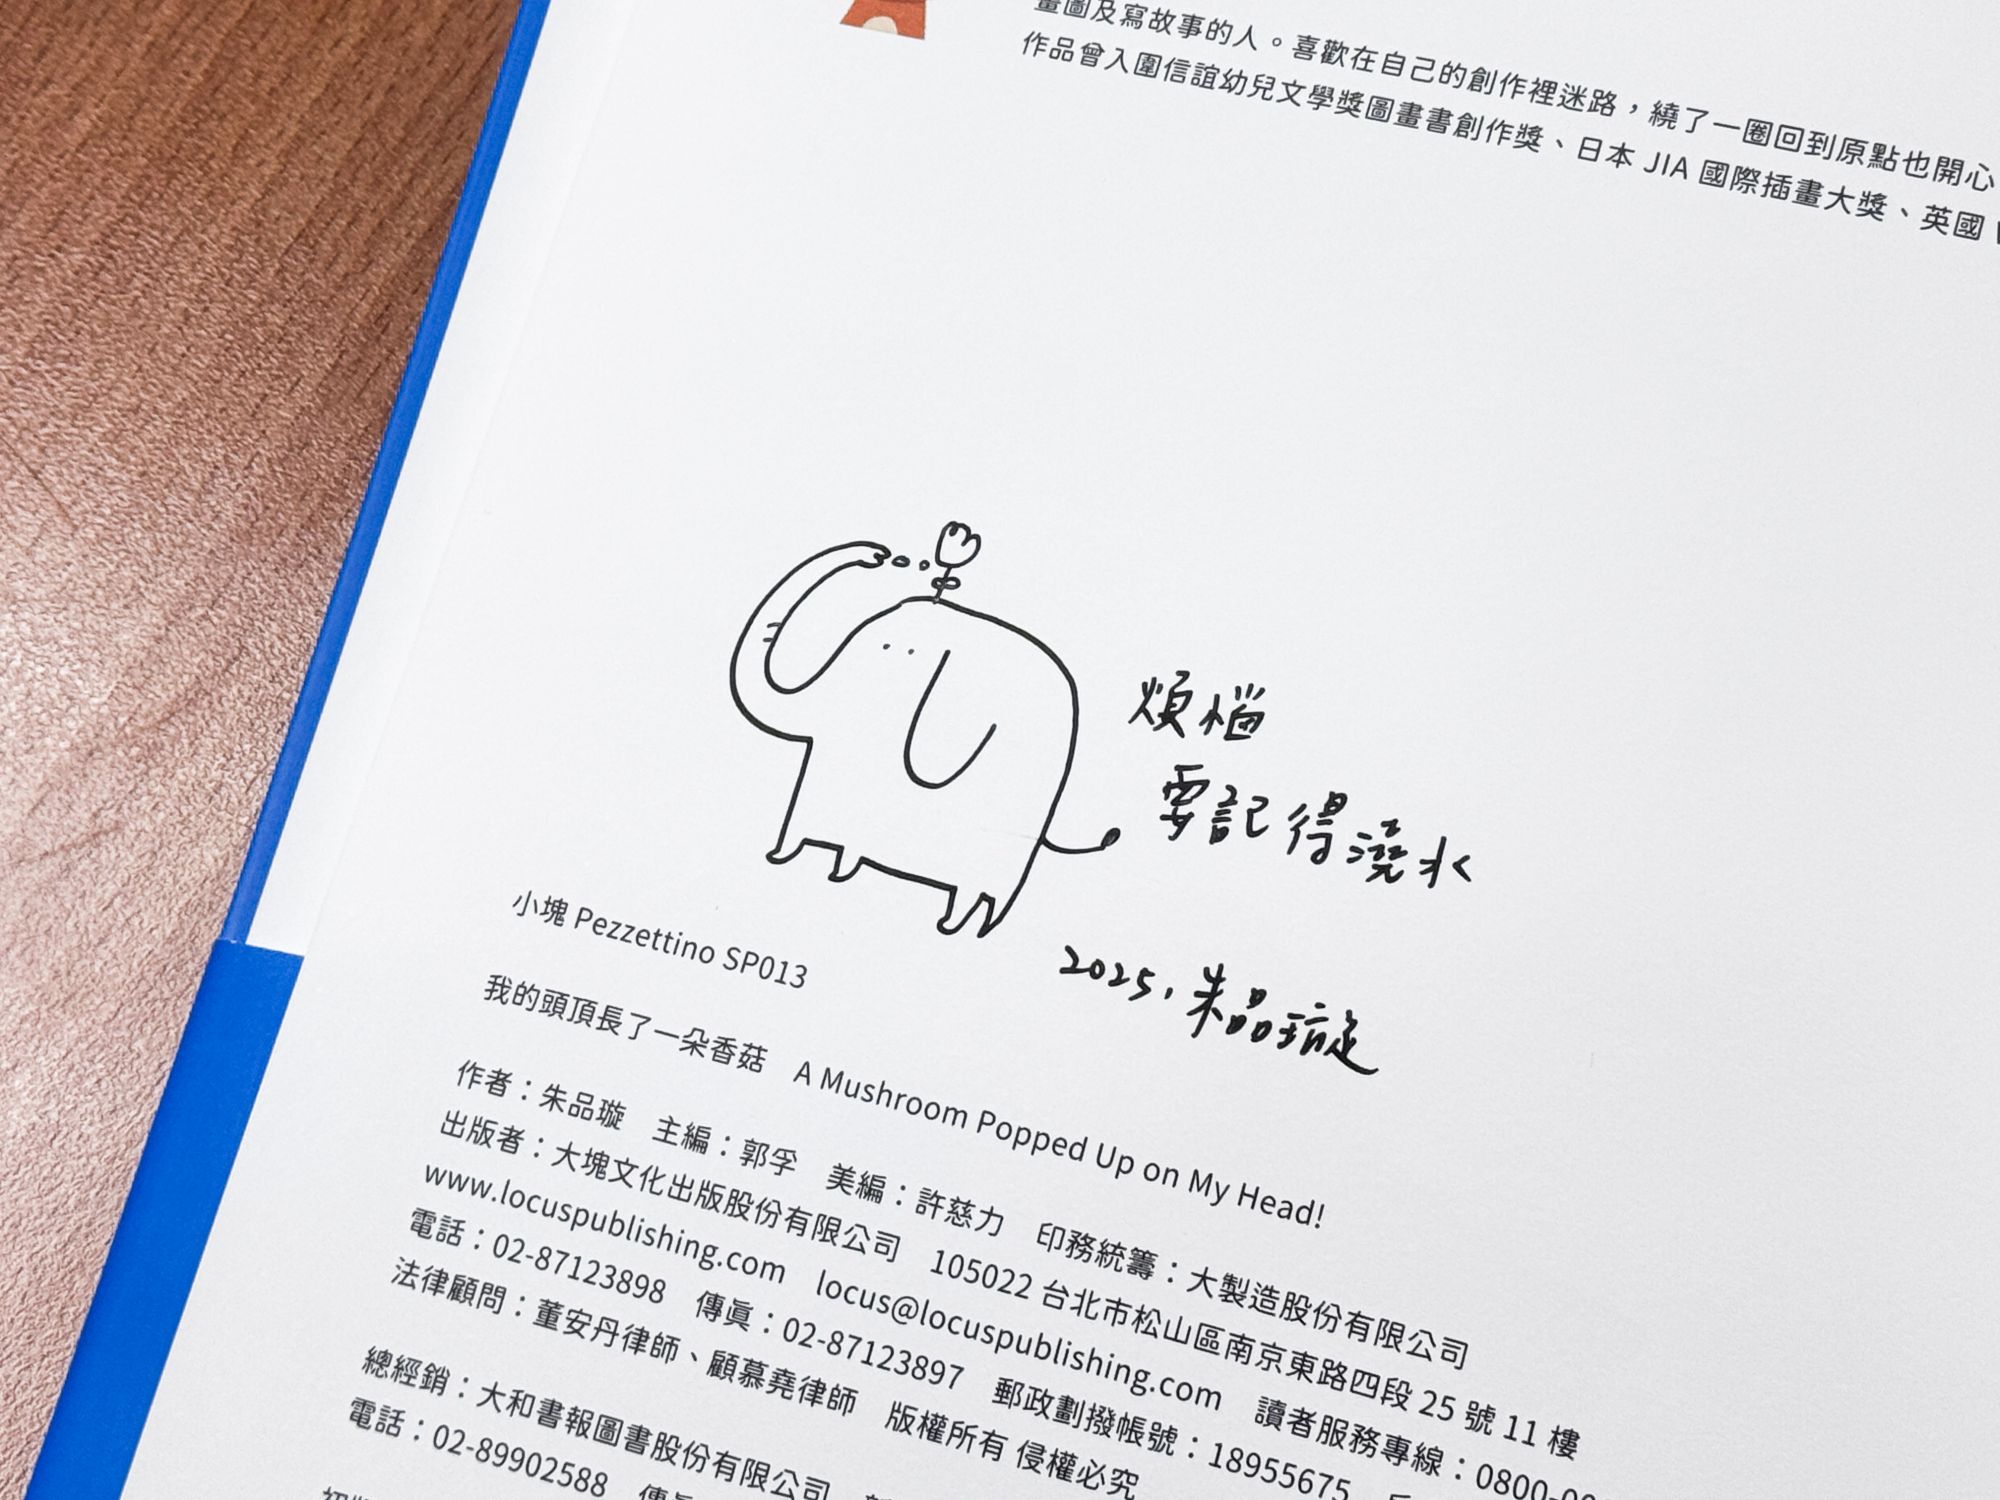 畫圖及寫故事的人。喜歡在自己的創作裡迷路，繞了一圈回到原點也開心
作品曾入圍信誼幼兒文學獎圖畫書創作獎、日本 JIA 國際插畫大獎、英國
煩惱
要記得澆水
2025, 朱品璇
小塊 Pezzettino SP013
我的頭頂長了一朵香菇 A Mushroom Popped Up on My Head!
作者：朱品璇 主編：郭孚 美編：許慈力 印務統籌：大製造股份有限公司
出版者：大塊文化出版股份有限公司 105022 台北市松山區南京東路四段 25 號 11 樓
www.locuspublishing.com locus@locuspublishing.com 讀者服務專線：0800-0
電話：02-87123898 傳眞：02-87123897 郵政劃撥帳號：18955675
法律顧問：董安丹律師、顧慕堯律師 版權所有 侵權必究
總經銷：大和書報圖書股份有限公司
電話：02-89902588 傳眞